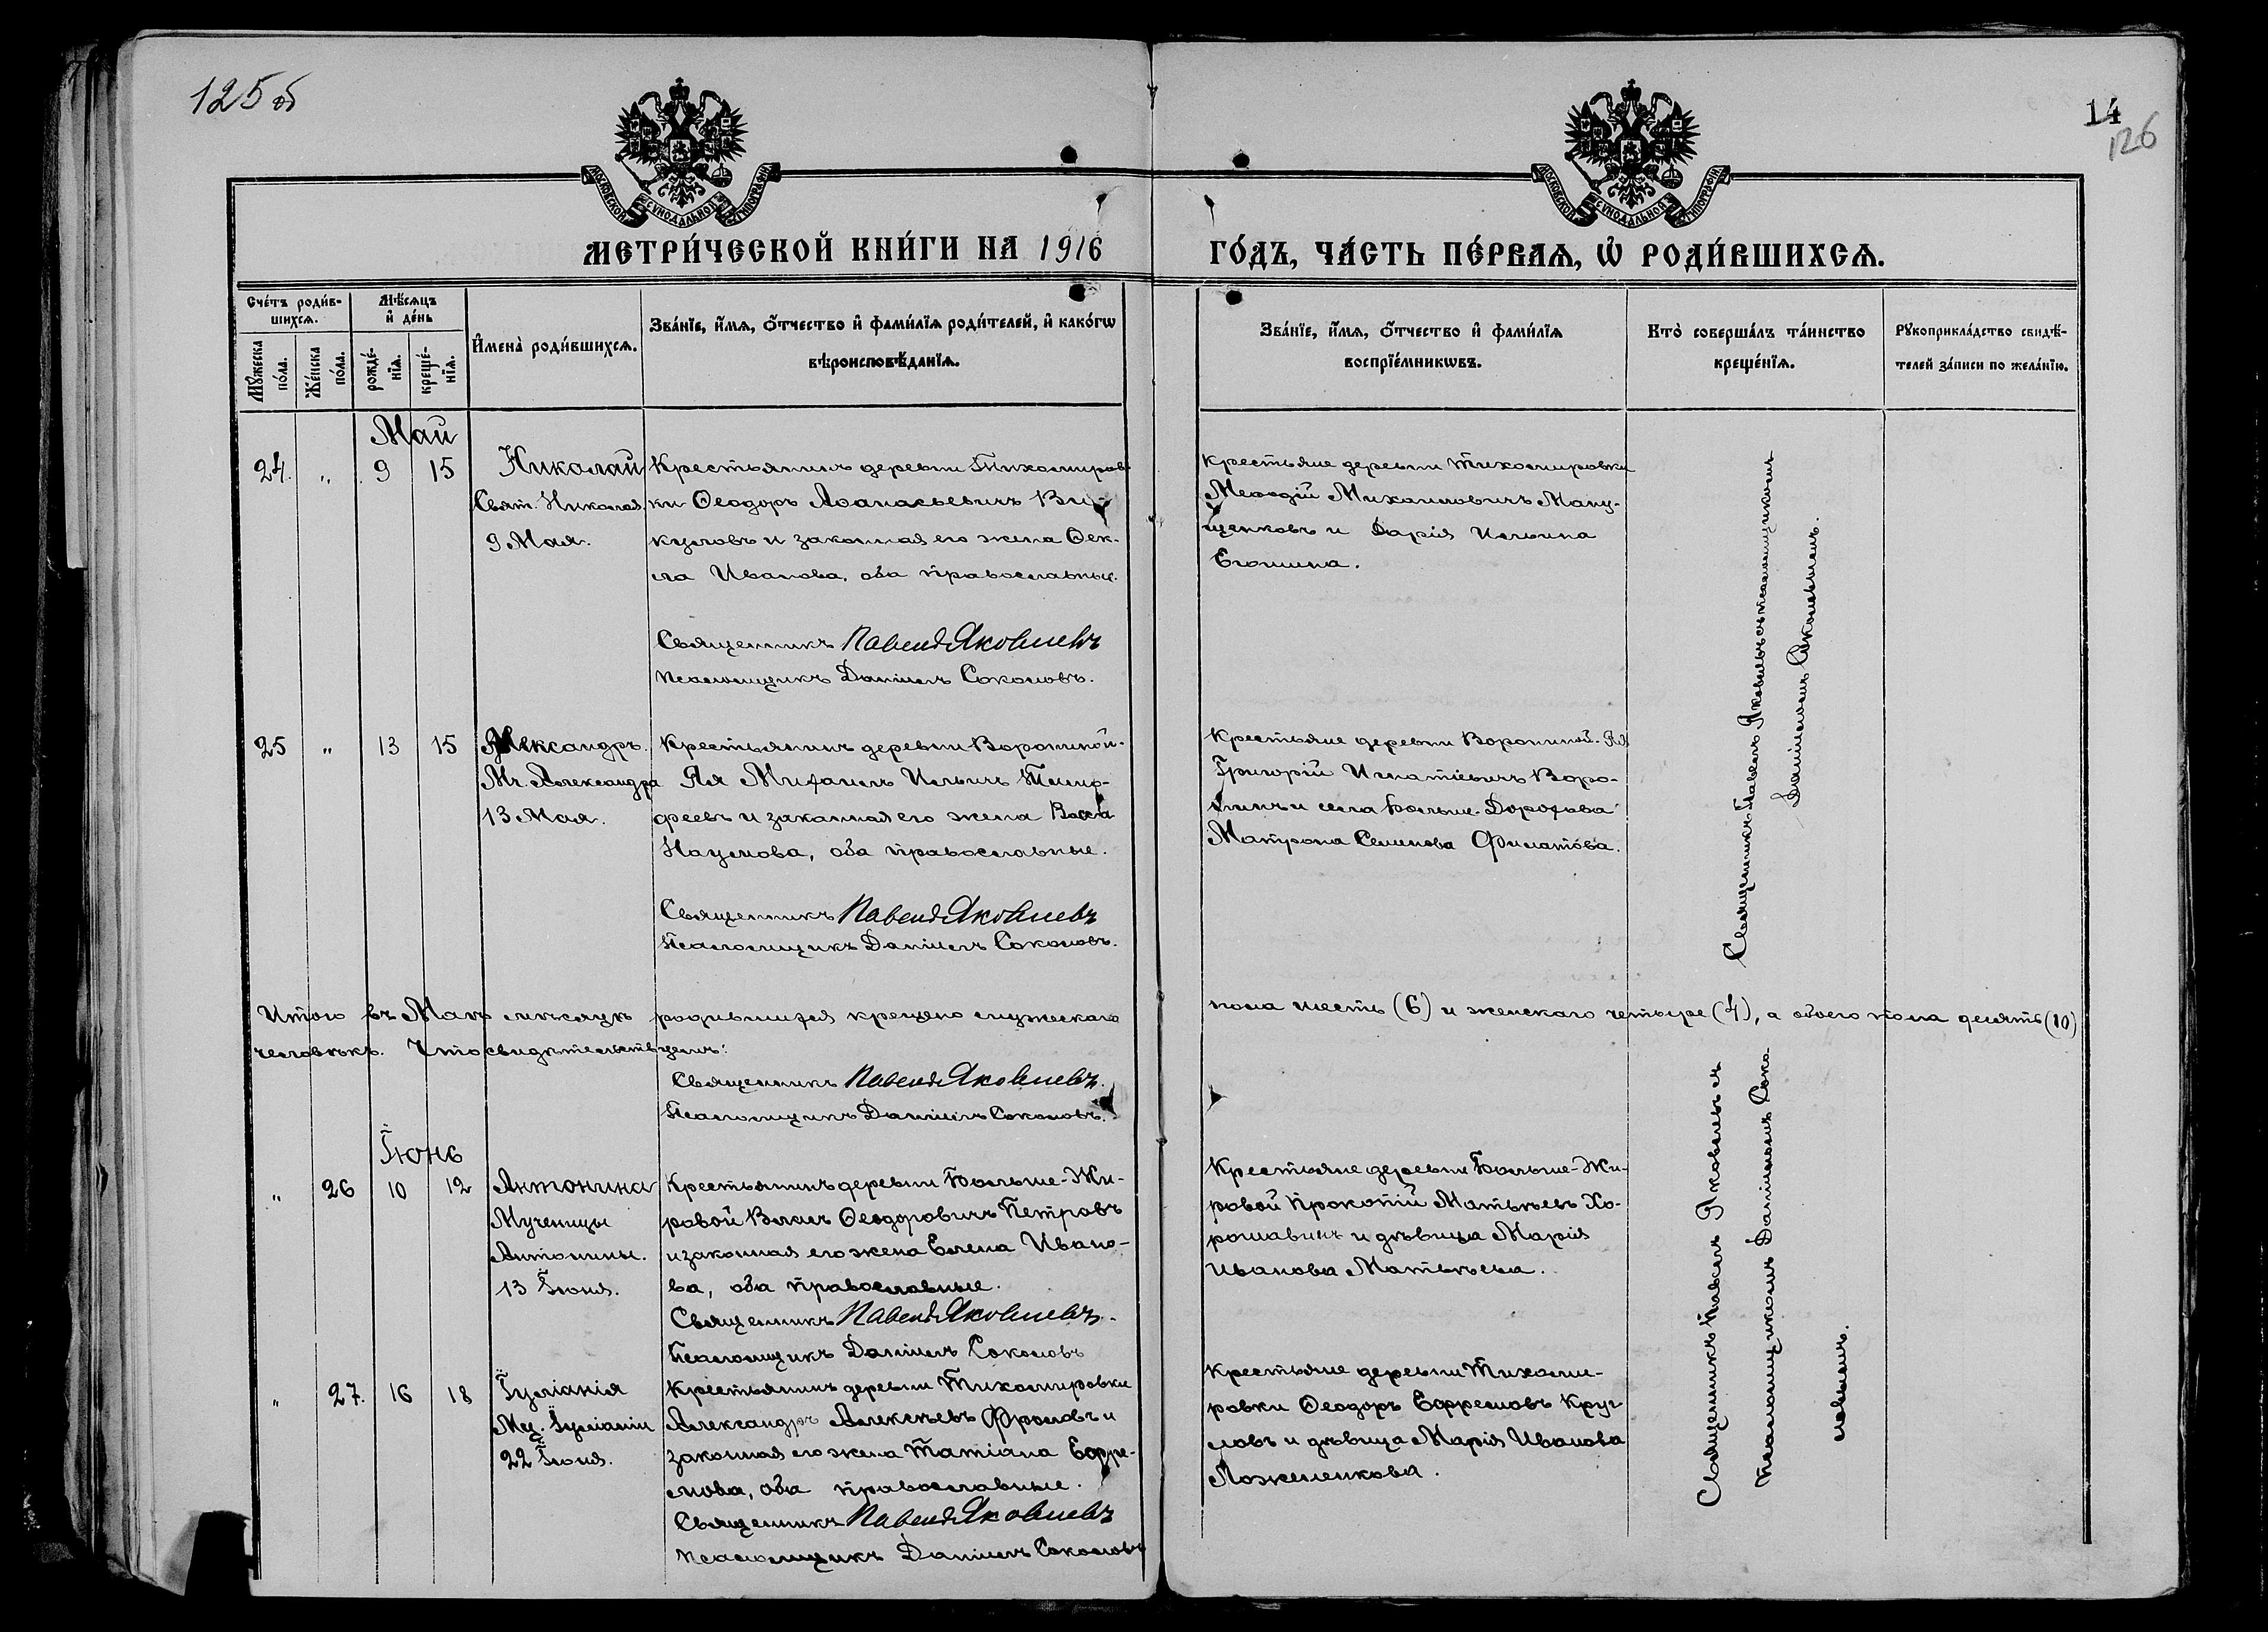 125 об
14
126
МОСКОВСКОЙ СУНОДАЛЬНОЙ ТИПОГРАФІИ
МОСКОВСКОЙ СУНОДАЛЬНОЙ ТИПОГРАФІИ
МЕТРИ́ЧЕСКОЙ КНИ́ГИ НА 1916
ГО́ДЪ, ЧА́СТЬ ПЕ́РВАѦ, Ѡ҆ РОДИ́ВШИХСѦ.
Сче́тъ роди́в-
шихсѧ.
Мꙋ́жеска
по́ла.
Же́нска
по́ла.
Мѣ́сѧцъ
и҆ де́нь
рожде́-
нїѧ.
креще́-
нїѧ.
И҆мена̀ роди́вшихсѧ.
Зва́нїе, и҆́мѧ, ѻ҆́тчество и҆ фами́лїѧ роди́телей, и҆ како́гѡ
вѣроисповѣ́данїѧ.
Зва́нїе, и҆́мѧ, ѻ҆́тчество и҆ фами́лїѧ
воспрїе́мникѡвъ.
Кто̀ соверша́лъ та́инство
креще́нїѧ.
Рꙋкоприкла́дство свидѣ́-
телей за́писи по жела́нїю.
Май
24. „ 9 15
Николай
Свят. Николая.
9 Мая.
Крестьянинъ деревни Тихомиров-
ки Ѳеодоръ Аѳанасьевичъ Ви-
куловъ и законная его жена Ѳек-
ла Иванова, оба православные.
Священникъ Павелъ Яковлевъ
Псаломщикъ Даніилъ Соколовъ.
Крестьяне деревни Тихомировки
Меѳодій Михаиловичъ Ману-
щенковъ и Дарія Ильина
Егошина.
Священникъ Павелъ Яковлевъ съ псаломщикомъ
Даніиломъ Соколовымъ.
25 „ 13 15
Александръ.
Мч. Александра
13 Мая.
Крестьянинъ деревни Ворониной-
Яля Михаилъ Ильичъ Тимо-
феевъ и законная его жена Васса
Наумова, оба православные.
Священникъ Павелъ Яковлевъ
Псаломщикъ Даніилъ Соколовъ.
Крестьяне деревни Ворониной-Яля
Григорій Игнатіевичъ Воро-
нинъ и села Больше-Дорофѣева
Матрона Семенова Филатова.
Итого въ Маѣ мѣсяцѣ родившихся крещено мужескаго
пола шесть (6) и женскаго четыре (4), а обоего пола десять (10)
человѣкъ. Что свидѣтельствуемъ:
Священникъ Павелъ Яковлевъ.
Псаломщикъ Даніилъ Соколовъ.
Іюнь
„ 26 10 12
Антонина
Мученицы
Антонины.
13 Іюня.
Крестьянинъ деревни Больше-Жи-
ровой Власъ Ѳеодоровичъ Петровъ
и законная его жена Елена Ивано-
ва, оба православные.
Священникъ Павелъ Яковлевъ.
Псаломщикъ Даніилъ Соколовъ
Крестьяне деревни Больше-Жи-
ровой Прокопій Матвѣевъ Хо-
рошавинъ и дѣвица Марія
Иванова Матвѣева.
Священникъ Павелъ Яковлевъ съ
псаломщикомъ Даніиломъ Соко-
ловымъ.
„ 27. 16 18
Іуліанія
Мц. Іуліаніи
22 Іюня.
Крестьянинъ деревни Тихомировки
Александръ Алексѣевъ Фроловъ и
законная его жена Татіана Ефре-
мова, оба православные.
Священникъ Павелъ Яковлевъ
Псаломщикъ Даніилъ Соколовъ
Крестьяне деревни Тихоми-
ровки Ѳеодоръ Ефремовъ Круг
ловъ и дѣвица Марія Иванова
Ложеленкова.